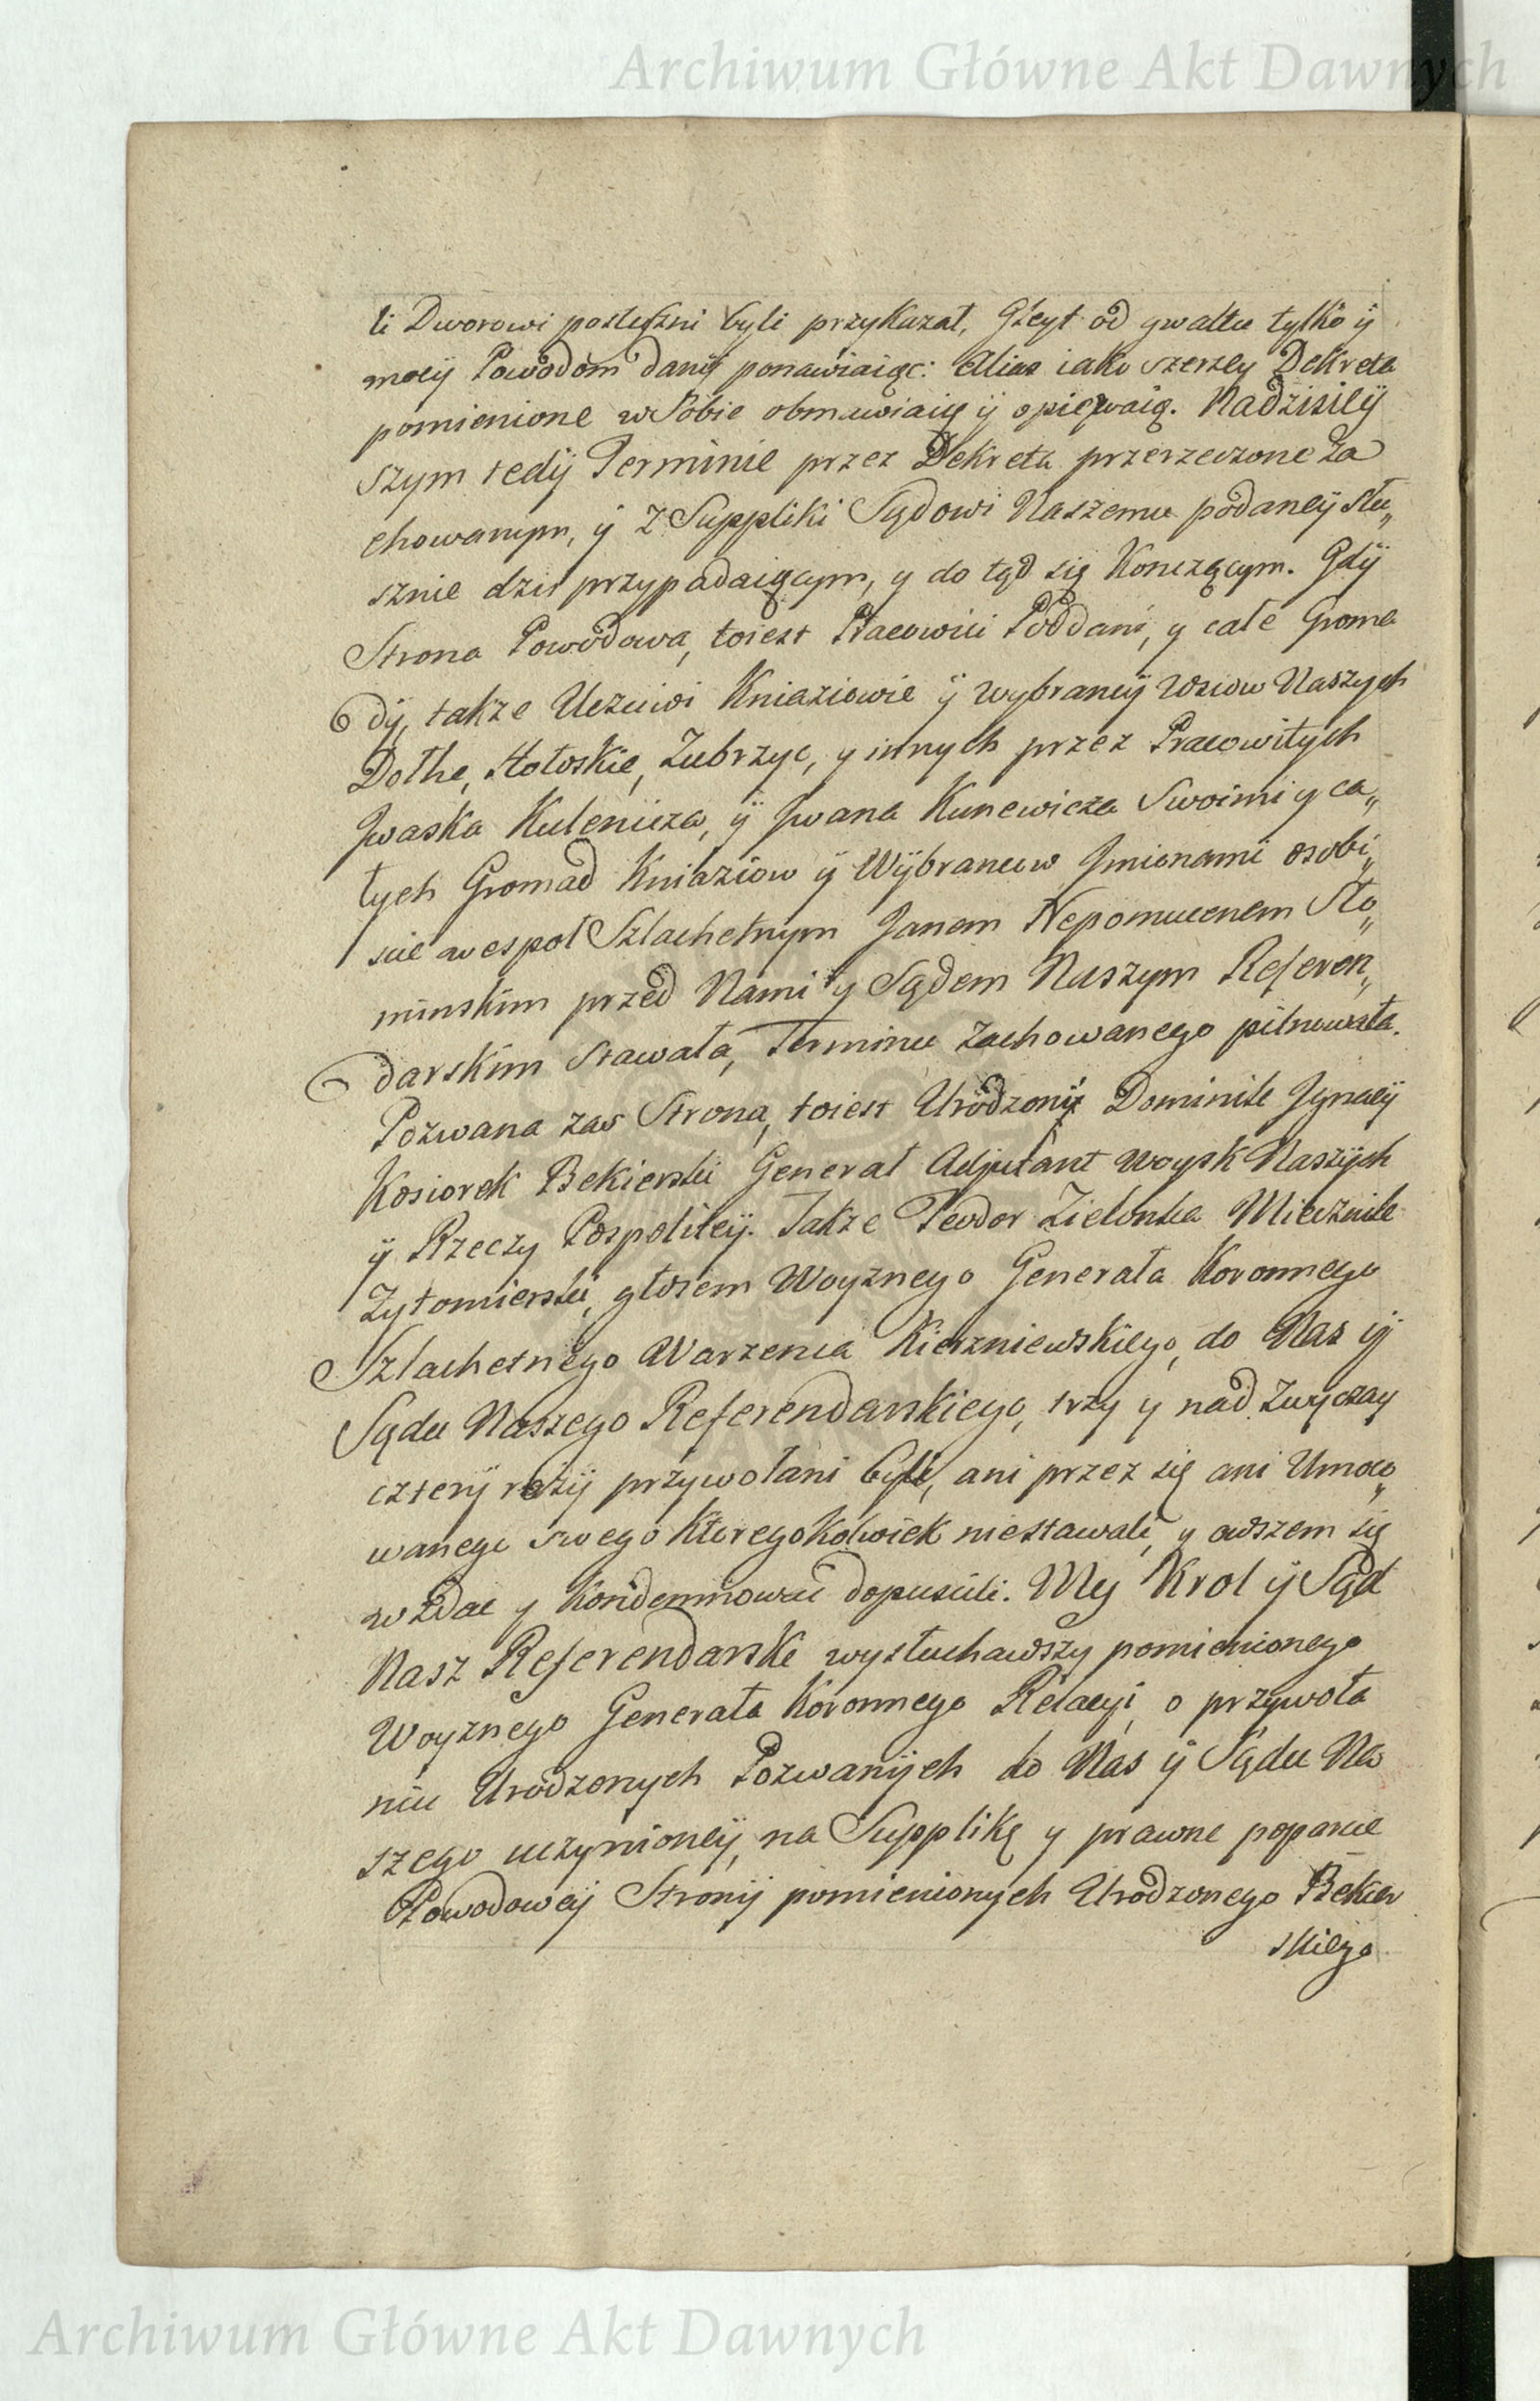 Archiwum Główne Akt Dawnych
li Dworowi posłuszni byli przykazał, Gleyt od gwałtu tylko ÿ
mocÿ Powodom danÿ ponawiaiąc: Alias iako szerzey Dekreta
pomienione w Sobie obmawiaią ÿ opiewaią. Nadzisieÿ
szym tedÿ Terminie przez Dekreta przerzeczone za
chowanym, ÿ z Suppliki Sądowi Naszemu podaneÿ słu„
sznie dzis przypadaiącym, y do tąd się Konczącym. Gdÿ
Strona Powodowa, toiest Pracowici Poddani, y całe Groma
dÿ, także Uczciwi Kniaziowie ÿ wybrancÿ Wsiow Naszych
Dołhe, Hołoskie, Zubrzyc, y innych przez Pracowitych
Jwaska Kulenicza, ÿ Jwana Kunewicza Swoimi y ca„
łych Gromad Kniaziow ÿ Wÿbrancow Jmionami osobi„
scie wespoł Szlachetnym Janem Nepomucenem Sło„
minskim przed Nami y Sądem Naszym Referen„
darskim stawała, Terminu zachowanego pilnowała.
Pozwana zas Strona, toiest Urodzonÿ Dominik Jgnacÿ
Kosiorek Bekierski Generał Adjutant woysk Naszÿch
ÿ Rzeczy Pospoliteÿ. Także Teodor Zielonka Miecznik
Zytomierski, głosem Woyznego Generała Koronnego
Szlachetnego Warzenca Kierzniewskiego, do Nas ÿ
Sądu Naszego Referendarskiego, trzy y nad zwyczay
czterÿ razÿ przywołani byli, ani przez się ani Umoco„
wanego swego Ktoregokolwiek niestawali, y owszem się
w zdac y Kondemnowac dopuscili. My Krol ÿ Sąd
Nasz Referendarski wysłuchawszy pomienionego
Woyznego Generała Koronnego Relacyi, o przywoła
niu Urodzonych Pozwanÿch do Nas ÿ Sądu Na
szego uczynioneÿ, na Supplikę y prawne poparcie
Powodoweÿ Stronÿ pomienionych Urodzonego Bekier
skiego
Archiwum Główne Akt Dawnych